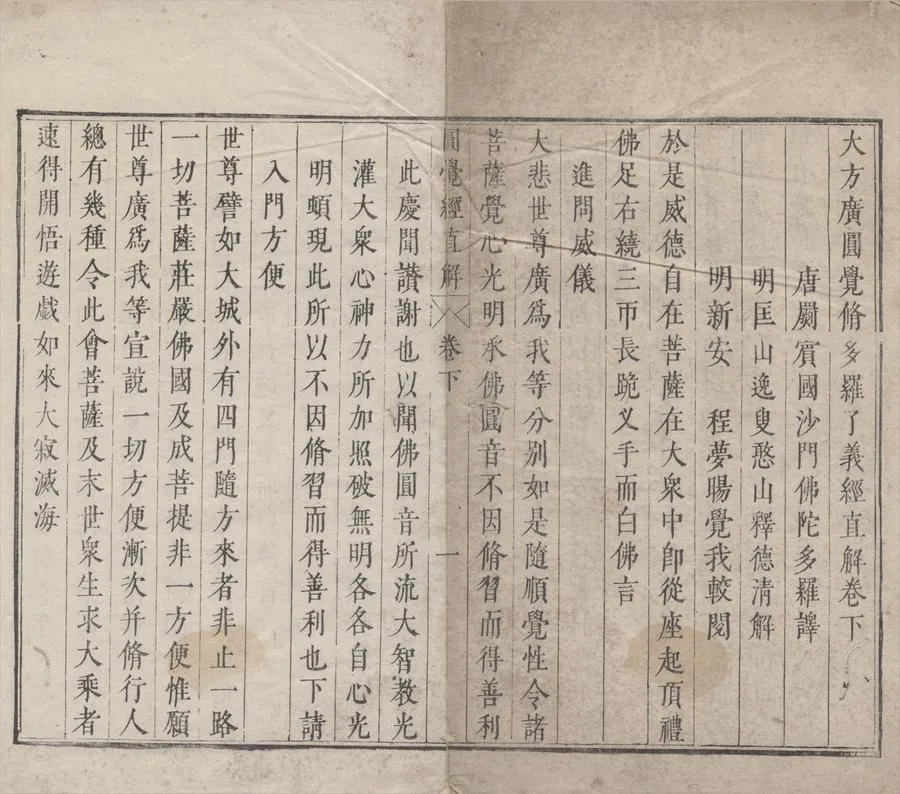 大方廣圓覺脩多羅了義經直解卷下
唐罽賓國沙門佛陀多羅譯
明匡山逸叟憨山釋德清解
明新安 程夢暘覺我較閱
於是威德自在菩薩在大衆中卽從座起頂禮
佛足右繞三帀長跪叉手而白佛言
進問威儀
大悲世尊廣爲我等分別如是隨順覺性令諸
菩薩覺心光明承佛圓音不因脩習而得善利
圓覺經直解 卷下 一
此慶聞讚謝也以聞佛圓音所流大智教光
灌大衆心神力所加照破無明各各自心光
明頓現此所以不因脩習而得善利也下請
入門方便
世尊譬如大城外有四門隨方來者非止一路
一切菩薩莊嚴佛國及成菩提非一方便惟願
世尊廣爲我等宣說一切方便漸次并脩行人
總有幾種令此會菩薩及末世衆生求大乘者
速得開悟遊戲如來大寂滅海